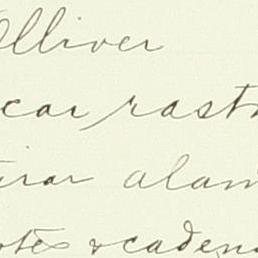 Olliver
car rast
irar alam
otes & cadena